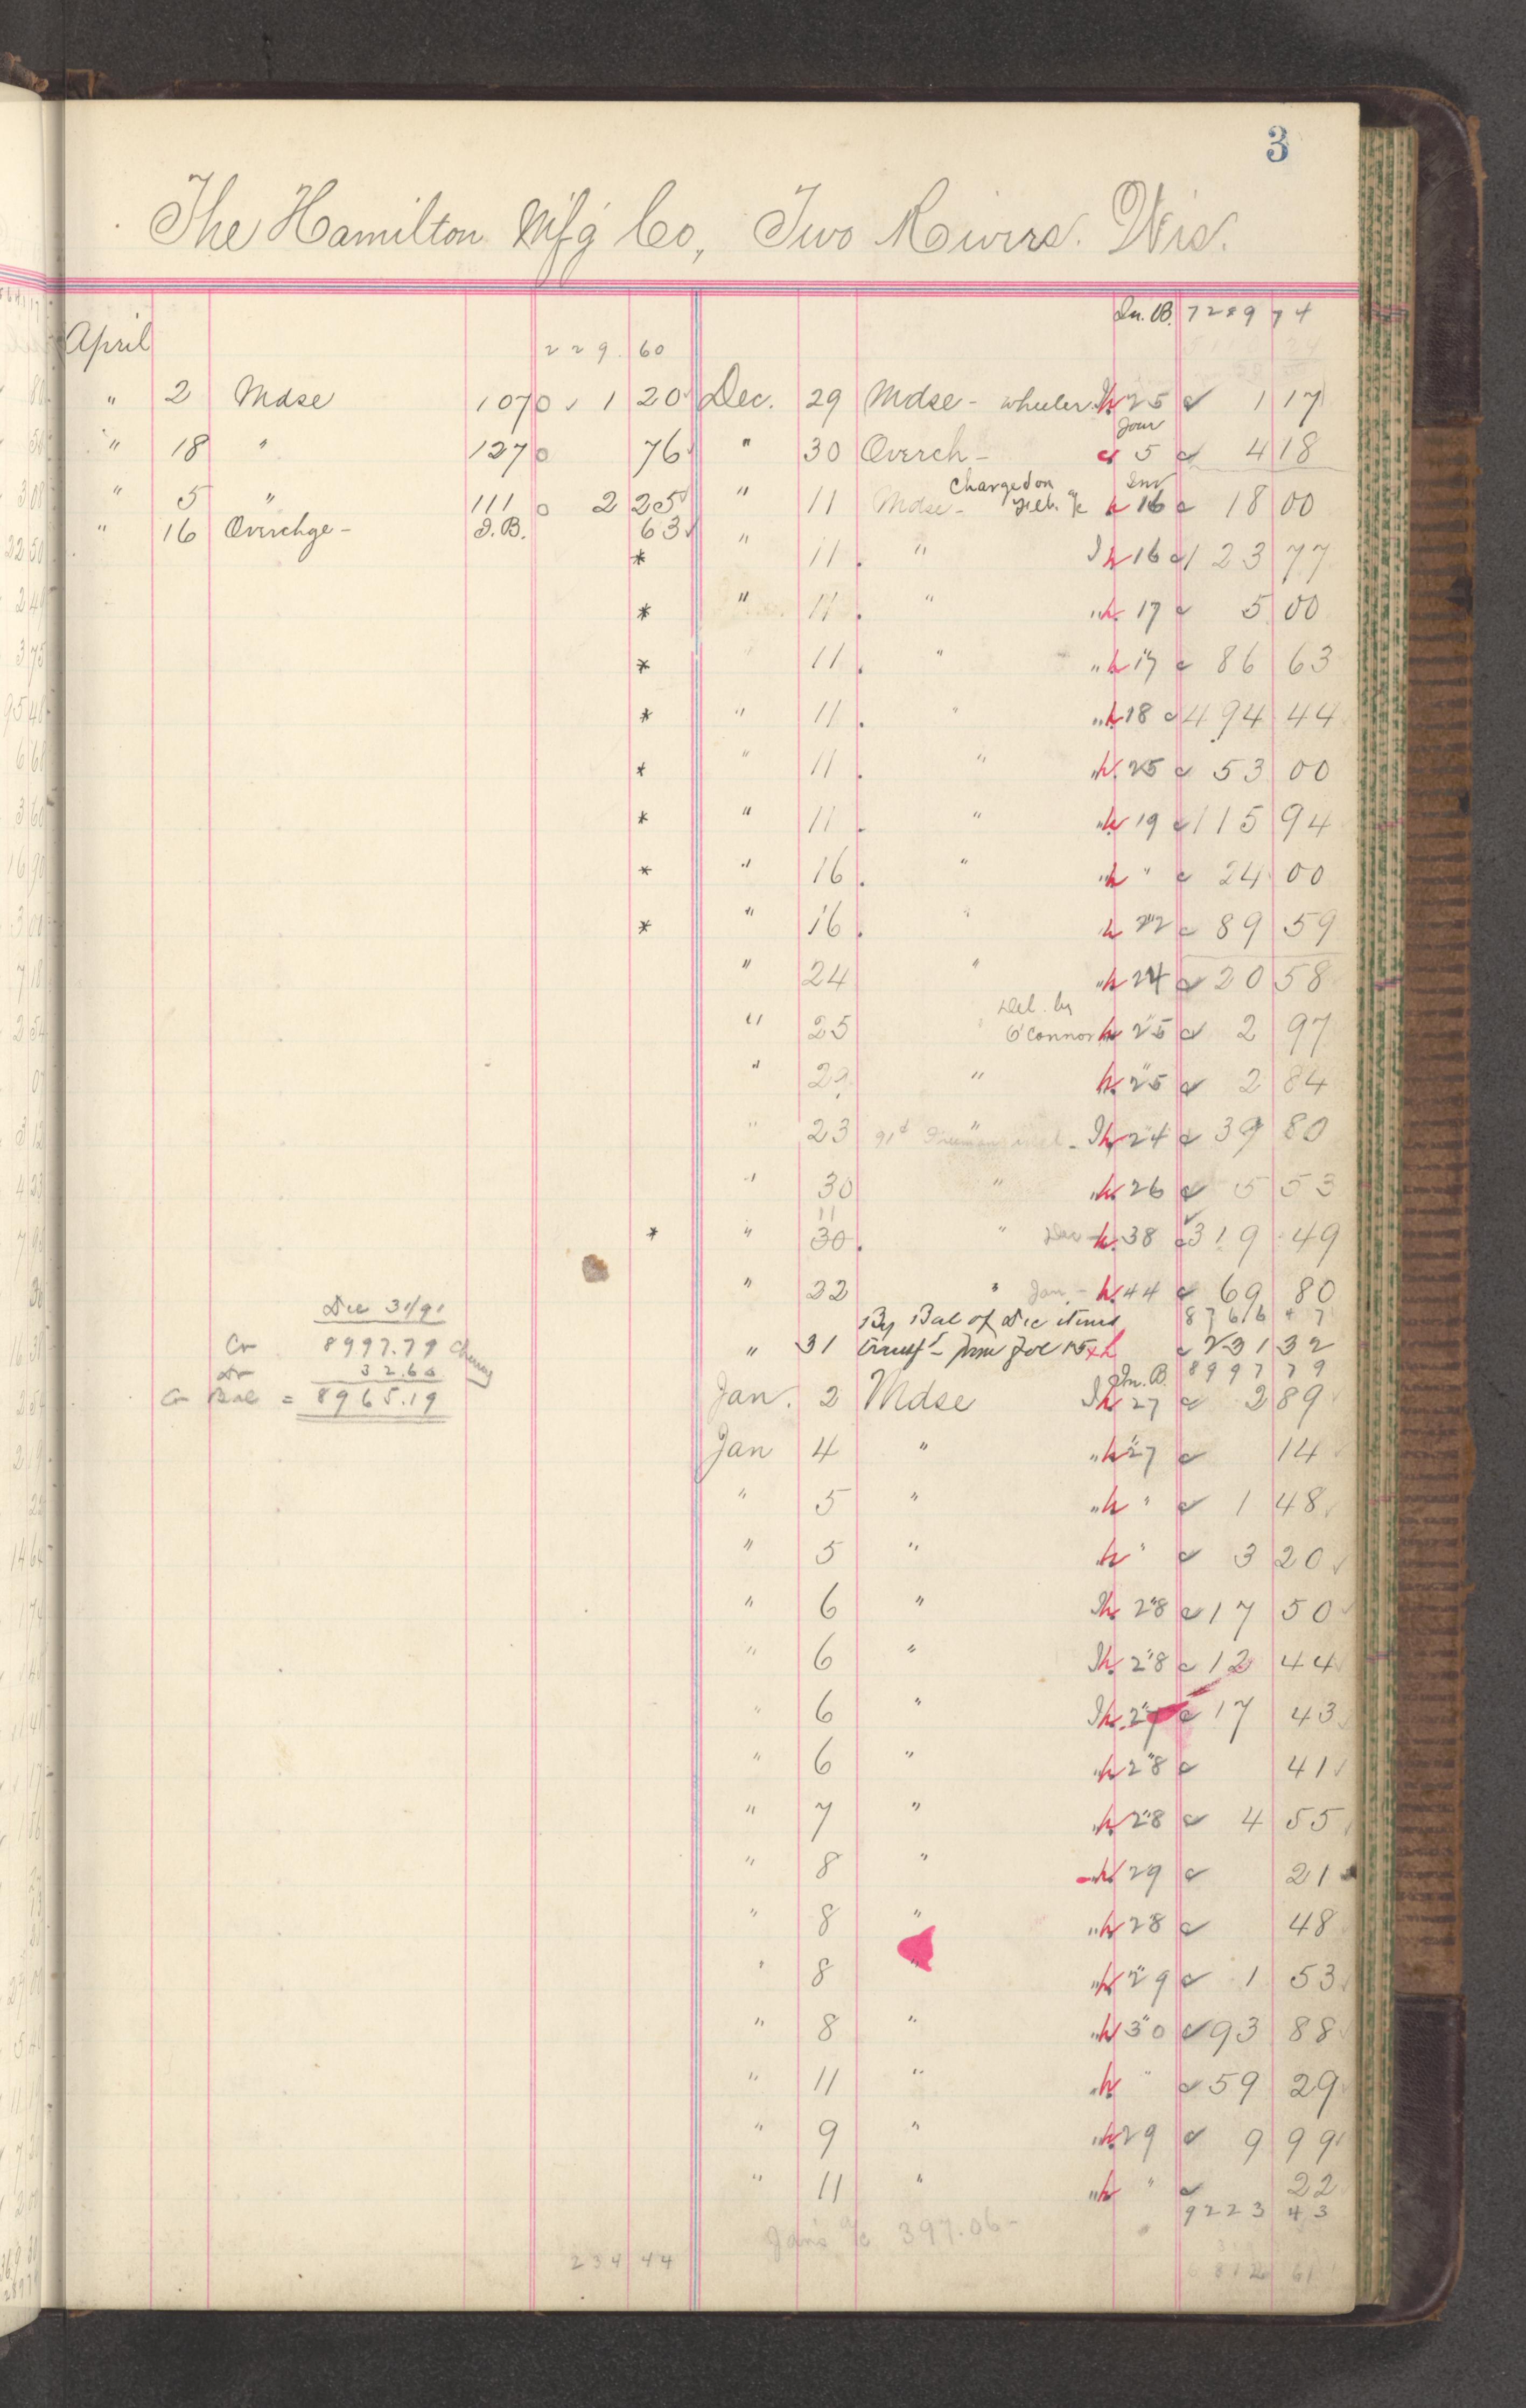 3
The Hamilton Mf'g Co, Two Rivers. Wis.
In. B. 7289 74
April
229. 60
" 2 Mdse 107 1 20 Dec. 29 Mdse - wheeler. 25 1 17
" 18 " 127 76 " 30 Overch - Jour 5 4 18
" 5 " 111 2 25 " 11 Mdse - Charged on Feb. a/c Inv 16 18 00
" 16 Overchge - I. B. 63
* " 11 . " 16 123 77
* " 11 . " " 17 5 00
* " 11 . " " 17 86 63
* " 11 . " " 18 494 44
* " 11 . " " 25 53 00
* " 11 . " " 19 115 94
* " 16 . " " " 24 00
* " 16 . " 22 89 59
" 24 " " 24 20 58
" 25 Del. by O'Connor 25 2 97
" " 25 2 84
" 23 " 24 39 80
" 30 " " 26 5 53
* " 11 30 . " Dec 38 319 49
" 22 " Jan. - 44 69 80
By Bal of Dec items 8766 47
" 31 from Joe 15 231 32
Dec 31/91
Cr 8997.79
Dr 32.60
Cr Bal = 8965.19
In. B. 8997 79
Jan. 2 Mdse 27 2 89
Jan 4 " " 27 14
" 5 " " " 1 48
" 5 " " 3 20
" 6 " 28 17 50
" 6 " 28 12 44
" 6 " 27 17 43
" 6 " " 28 41
" 7 " " 28 4 55
" 8 " " 29 21
" 8 " " 28 48
" 8 " " 29 1 53
" 8 " " 30 93 88
" 11 " " " 59 29
" 9 " " 29 9 99
" 11 " " " 22
9223 43
Jan's a/c 397.06 -
234 44